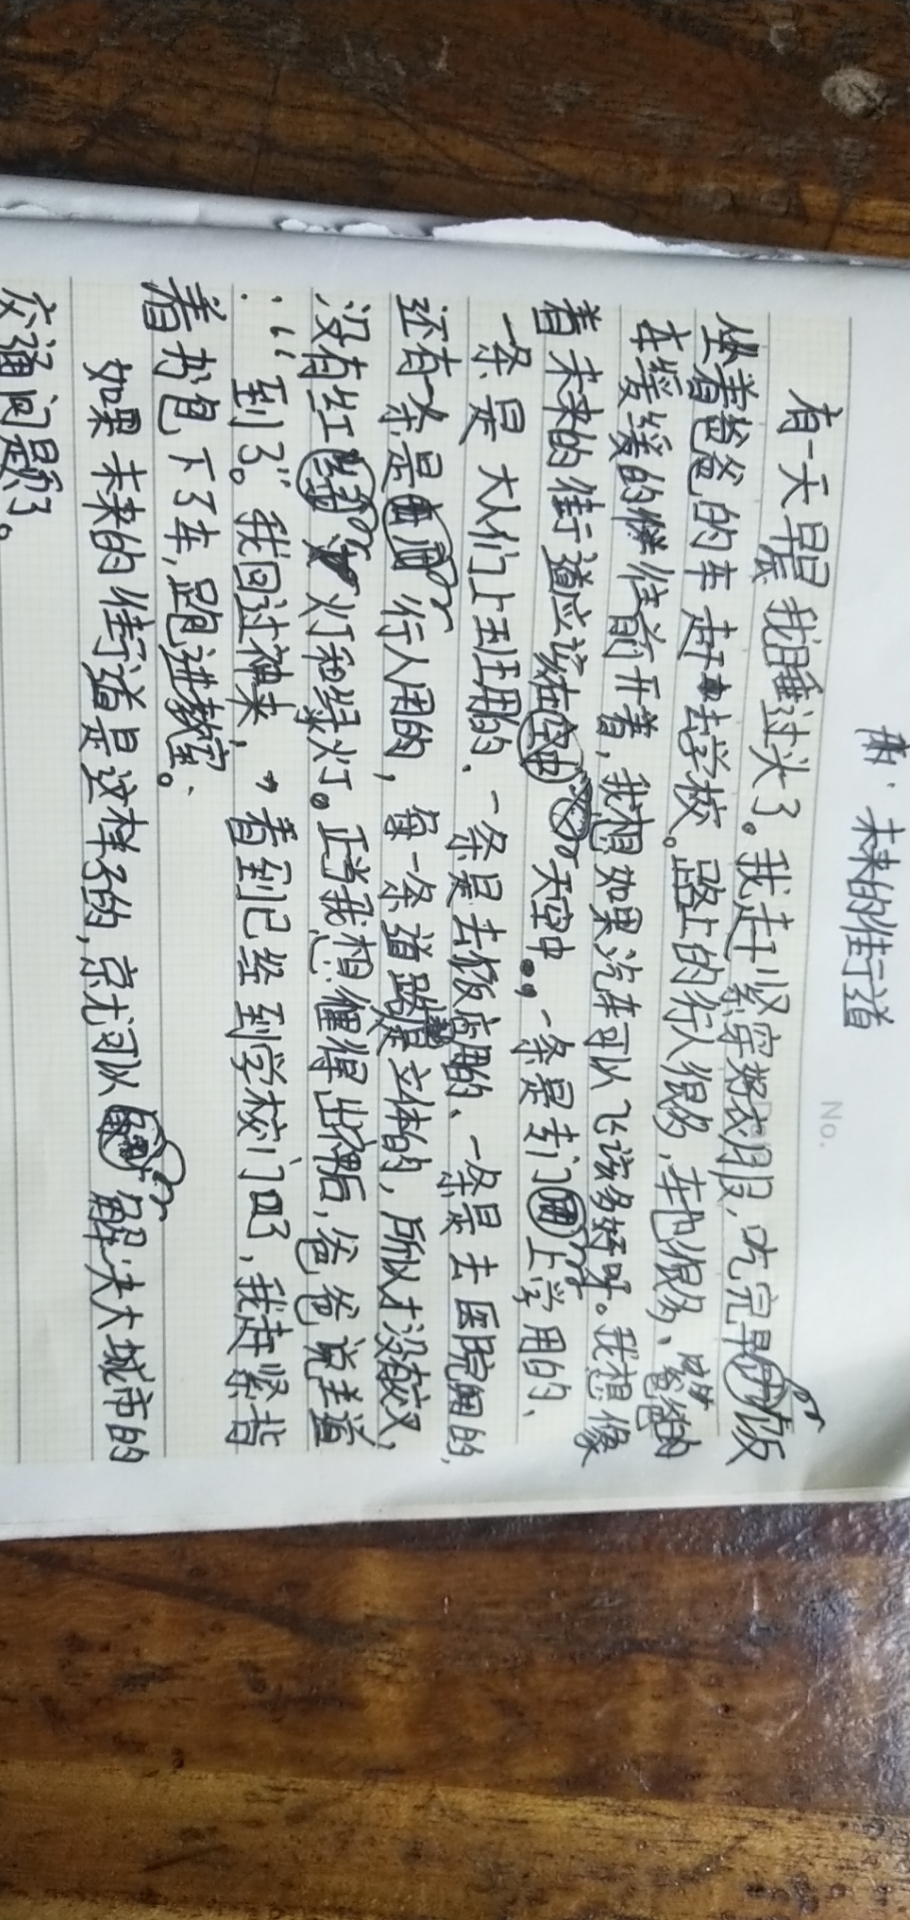 未来的街道
No.
有一天早晨我睡过头了。我赶紧穿好衣服，吃完早饭
坐着爸爸的车赶去学校。路上的行人很多，车也很多、爸爸的
车缓缓的往前开着，我想如果汽车可以飞该多好呀。我想像
着未来的街道应该在天空中。，一条是专门上学用的、
一条是大人们上班用的、一条是去饭店用的、一条是去医院用的，
还有一条是行人用的，每一条道路是立体的，所以才没有交叉，
没有红灯和绿灯。正当我想得出神后，爸爸说道
：“到了。”我回过神来，看到已经到学校门口了，我赶紧背
着书包下了车，跑进教室。
如果未来的街道是这样子的，就可以解决大城市的
交通问题了。